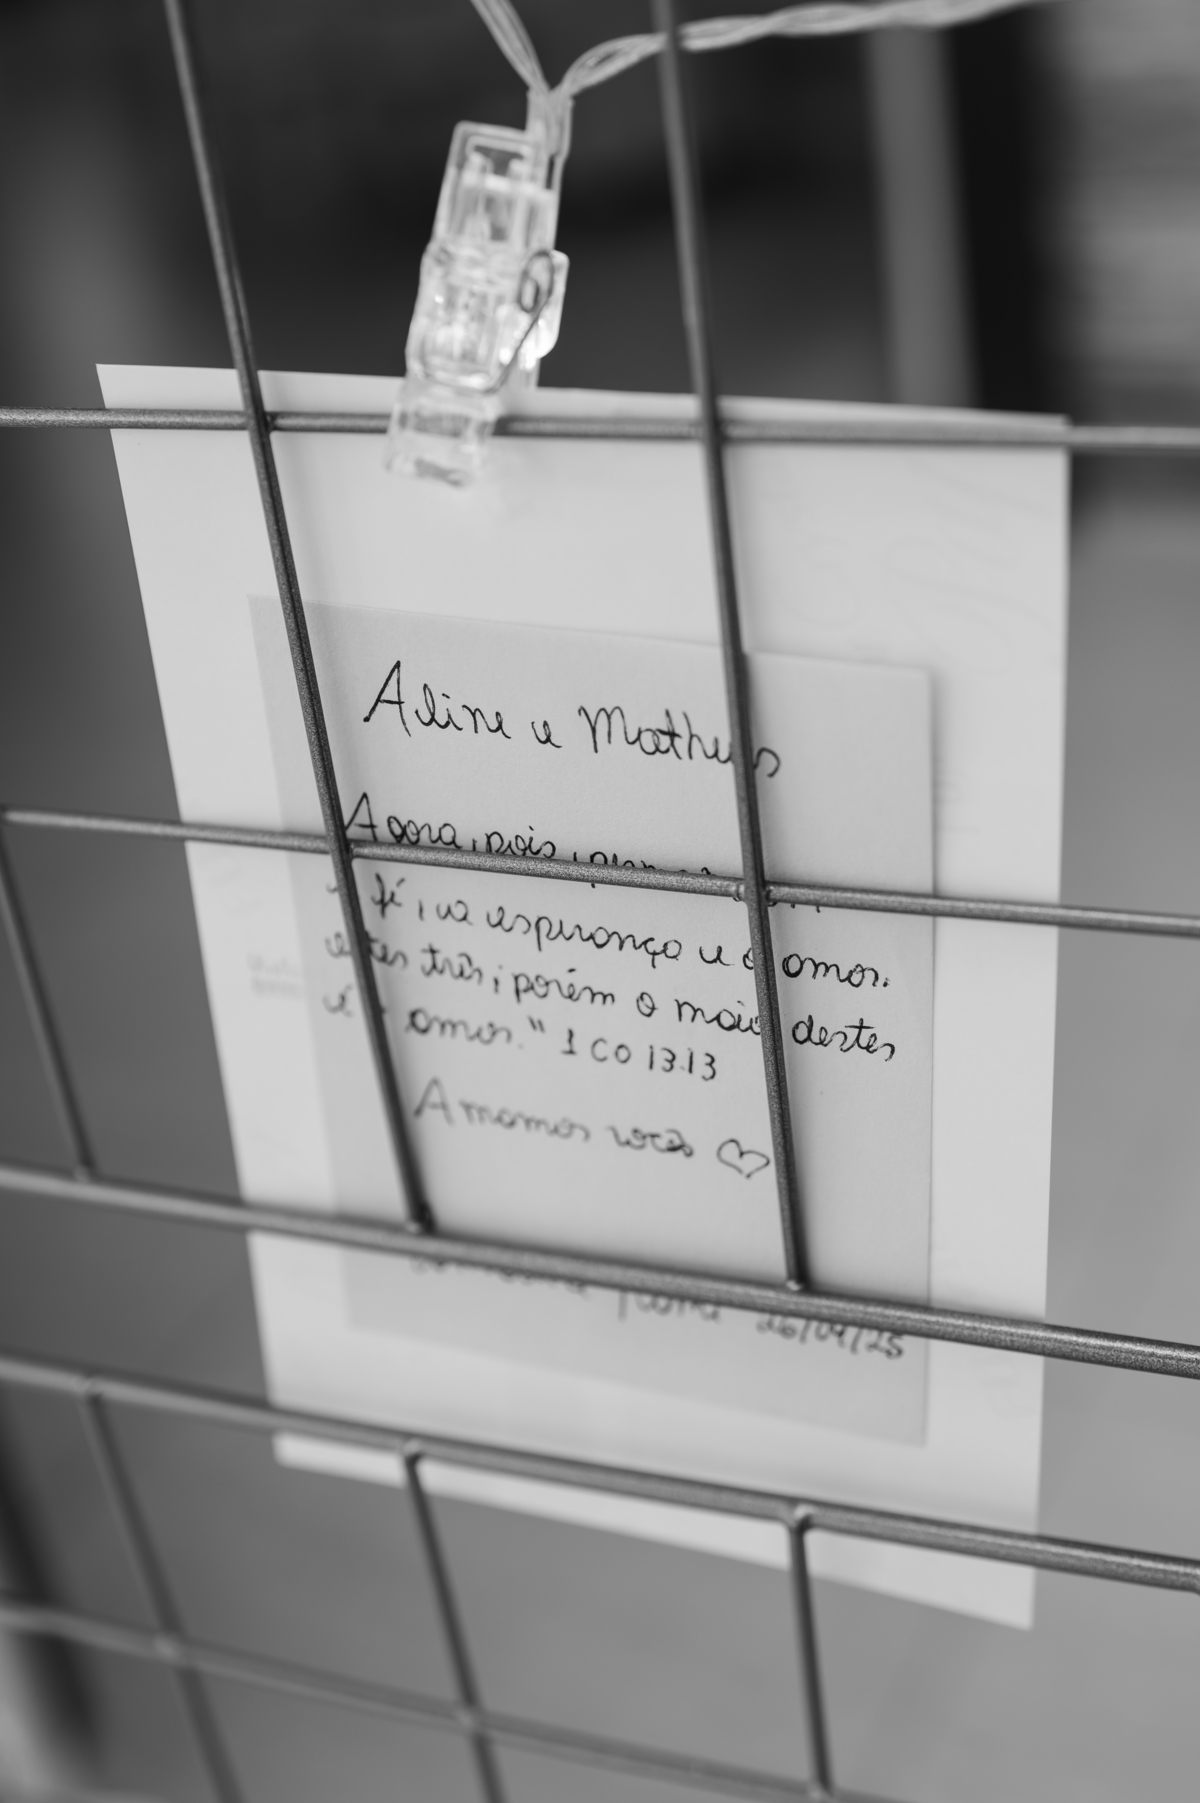 Aline e Matheus
Agora, pois,
fé, a esperança e o amor.
estes três; porém o maior destes
é o amor." 1 Co 13.13
Amamos vocês ♡
26/04/25